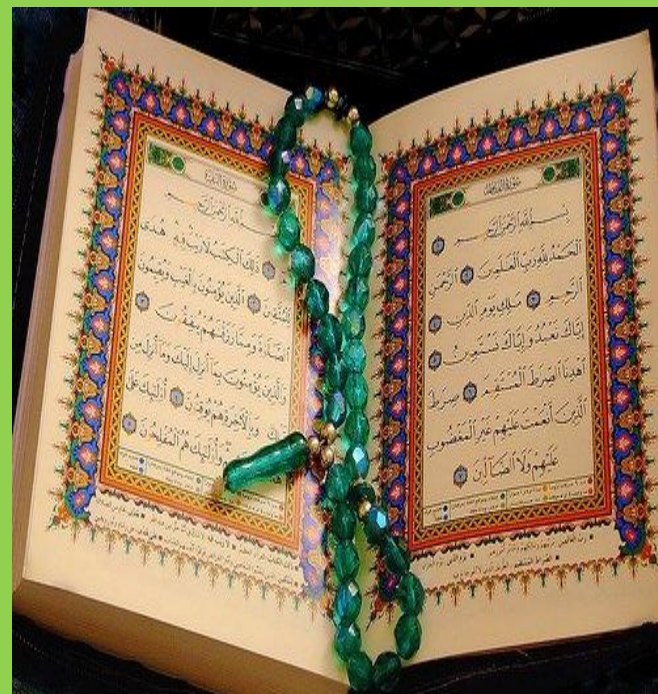 سُورَةُ الفَاتِحَة
بِسْمِ اللَّهِ الرَّحْمَٰنِ الرَّحِيمِ ١
الْحَمْدُ لِلَّهِ رَبِّ الْعَٰلَمِينَ ٢ الرَّحْمَٰنِ
الرَّحِيمِ ٣ مَٰلِكِ يَوْمِ الدِّينِ ٤
إِيَّاكَ نَعْبُدُ وَإِيَّاكَ نَسْتَعِينُ ٥
اهْدِنَا الصِّرَٰطَ الْمُسْتَقِيمَ ٦ صِرَٰطَ
الَّذِينَ أَنْعَمْتَ عَلَيْهِمْ غَيْرِ الْمَغْضُوبِ
عَلَيْهِمْ وَلَا الضَّالِّينَ ٧
سُورَةُ البَقَرَة
بِسْمِ اللَّهِ الرَّحْمَٰنِ الرَّحِيمِ
ذَٰلِكَ الْكِتَٰبُ لَا رَيْبَ فِيهِ هُدًى
لِلْمُتَّقِينَ ٢ الَّذِينَ يُؤْمِنُونَ بِالْغَيْبِ وَيُقِيمُونَ
الصَّلَوٰةَ وَمِمَّا رَزَقْنَٰهُمْ يُنْفِقُونَ ٣
وَالَّذِينَ يُؤْمِنُونَ بِمَا أُنْزِلَ إِلَيْكَ وَمَا أُنْزِلَ مِنْ
وَبِالْآخِرَةِ هُمْ يُوقِنُونَ ٤ أُولَٰئِكَ عَلَىٰ
وَأُولَٰئِكَ هُمُ الْمُفْلِحُونَ ٥